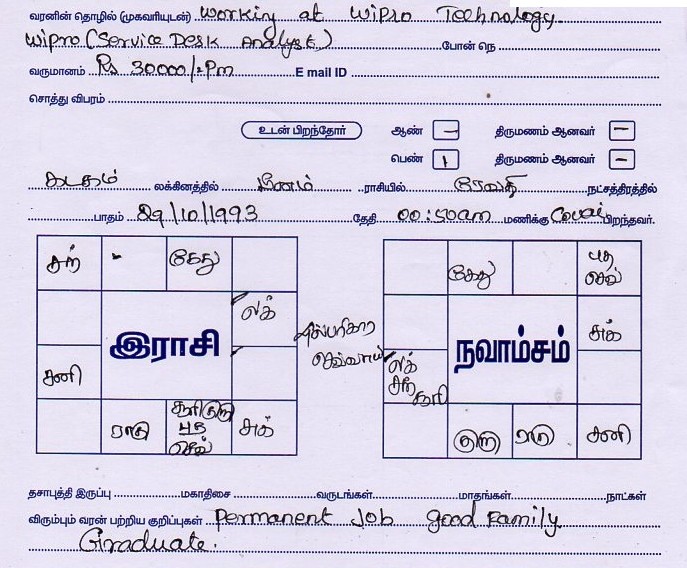 வரனின் தொழில் (முகவரியுடன்) Working at Wipro Technology.
Wipro (Service Desk Analyst.) போன் நெ
வருமானம் Rs 30000/-Pm E mail ID
சொத்து விபரம்
உடன் பிறந்தோர் ஆண் – திருமணம் ஆனவர் –
பெண் 1 திருமணம் ஆனவர் –
கடகம் லக்கினத்தில் மீனம் ராசியில் ரேவதி நட்சத்திரத்தில்
பாதம் 29/10/1993 தேதி 00:50am மணிக்கு Covai பிறந்தவர்.
சந் கேது
லக்
இராசி
சனி
ராகு சூரி குரு புத செவ் சுக்
பரிகார செவ்வாய்
கேது புத செவ்
சுக்
நவாம்சம்
லக் சந் சூரி
குரு ராகு சனி
தசாபுத்தி இருப்பு மகாதிசை வருடங்கள் மாதங்கள் நாட்கள்
விரும்பும் வரன் பற்றிய குறிப்புகள் Permanent Job good Family
Graduate.